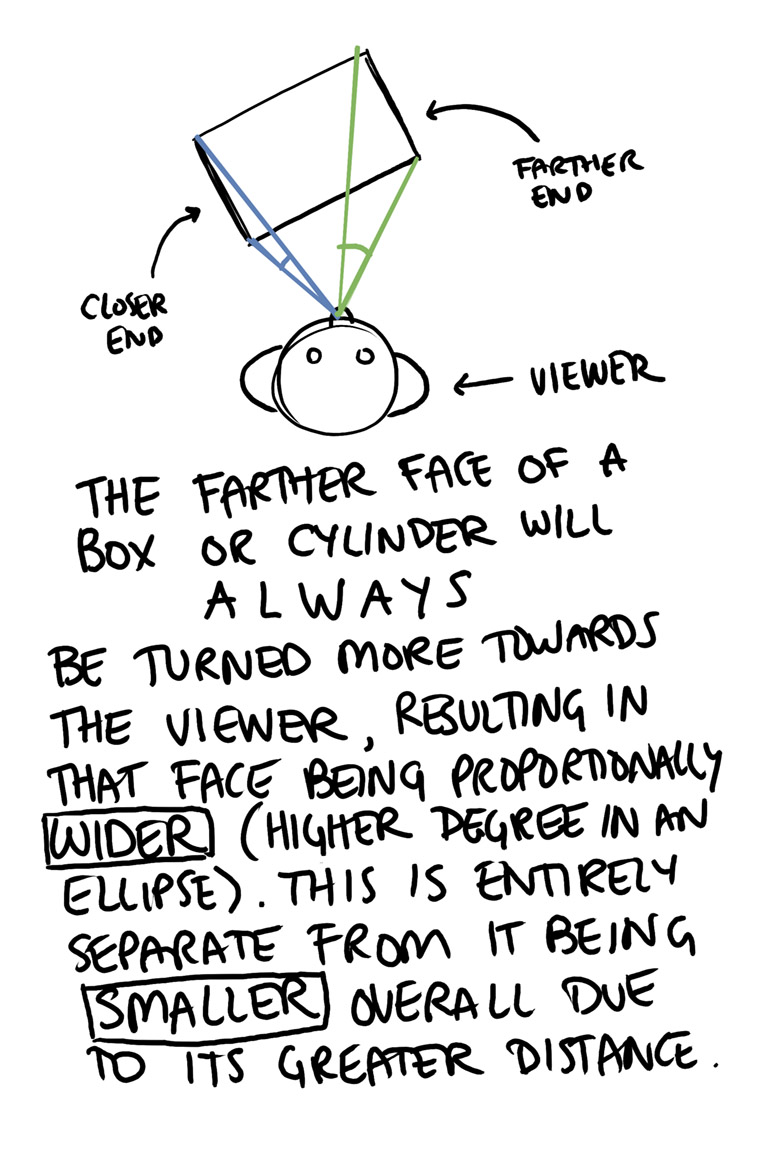 FARTHER
END
CLOSER
END
VIEWER
THE FARTHER FACE OF A
BOX OR CYLINDER WILL
ALWAYS
BE TURNED MORE TOWARDS
THE VIEWER, RESULTING IN
THAT FACE BEING PROPORTIONALLY
WIDER (HIGHER DEGREE IN AN
ELLIPSE). THIS IS ENTIRELY
SEPARATE FROM IT BEING
SMALLER OVERALL DUE
TO ITS GREATER DISTANCE.